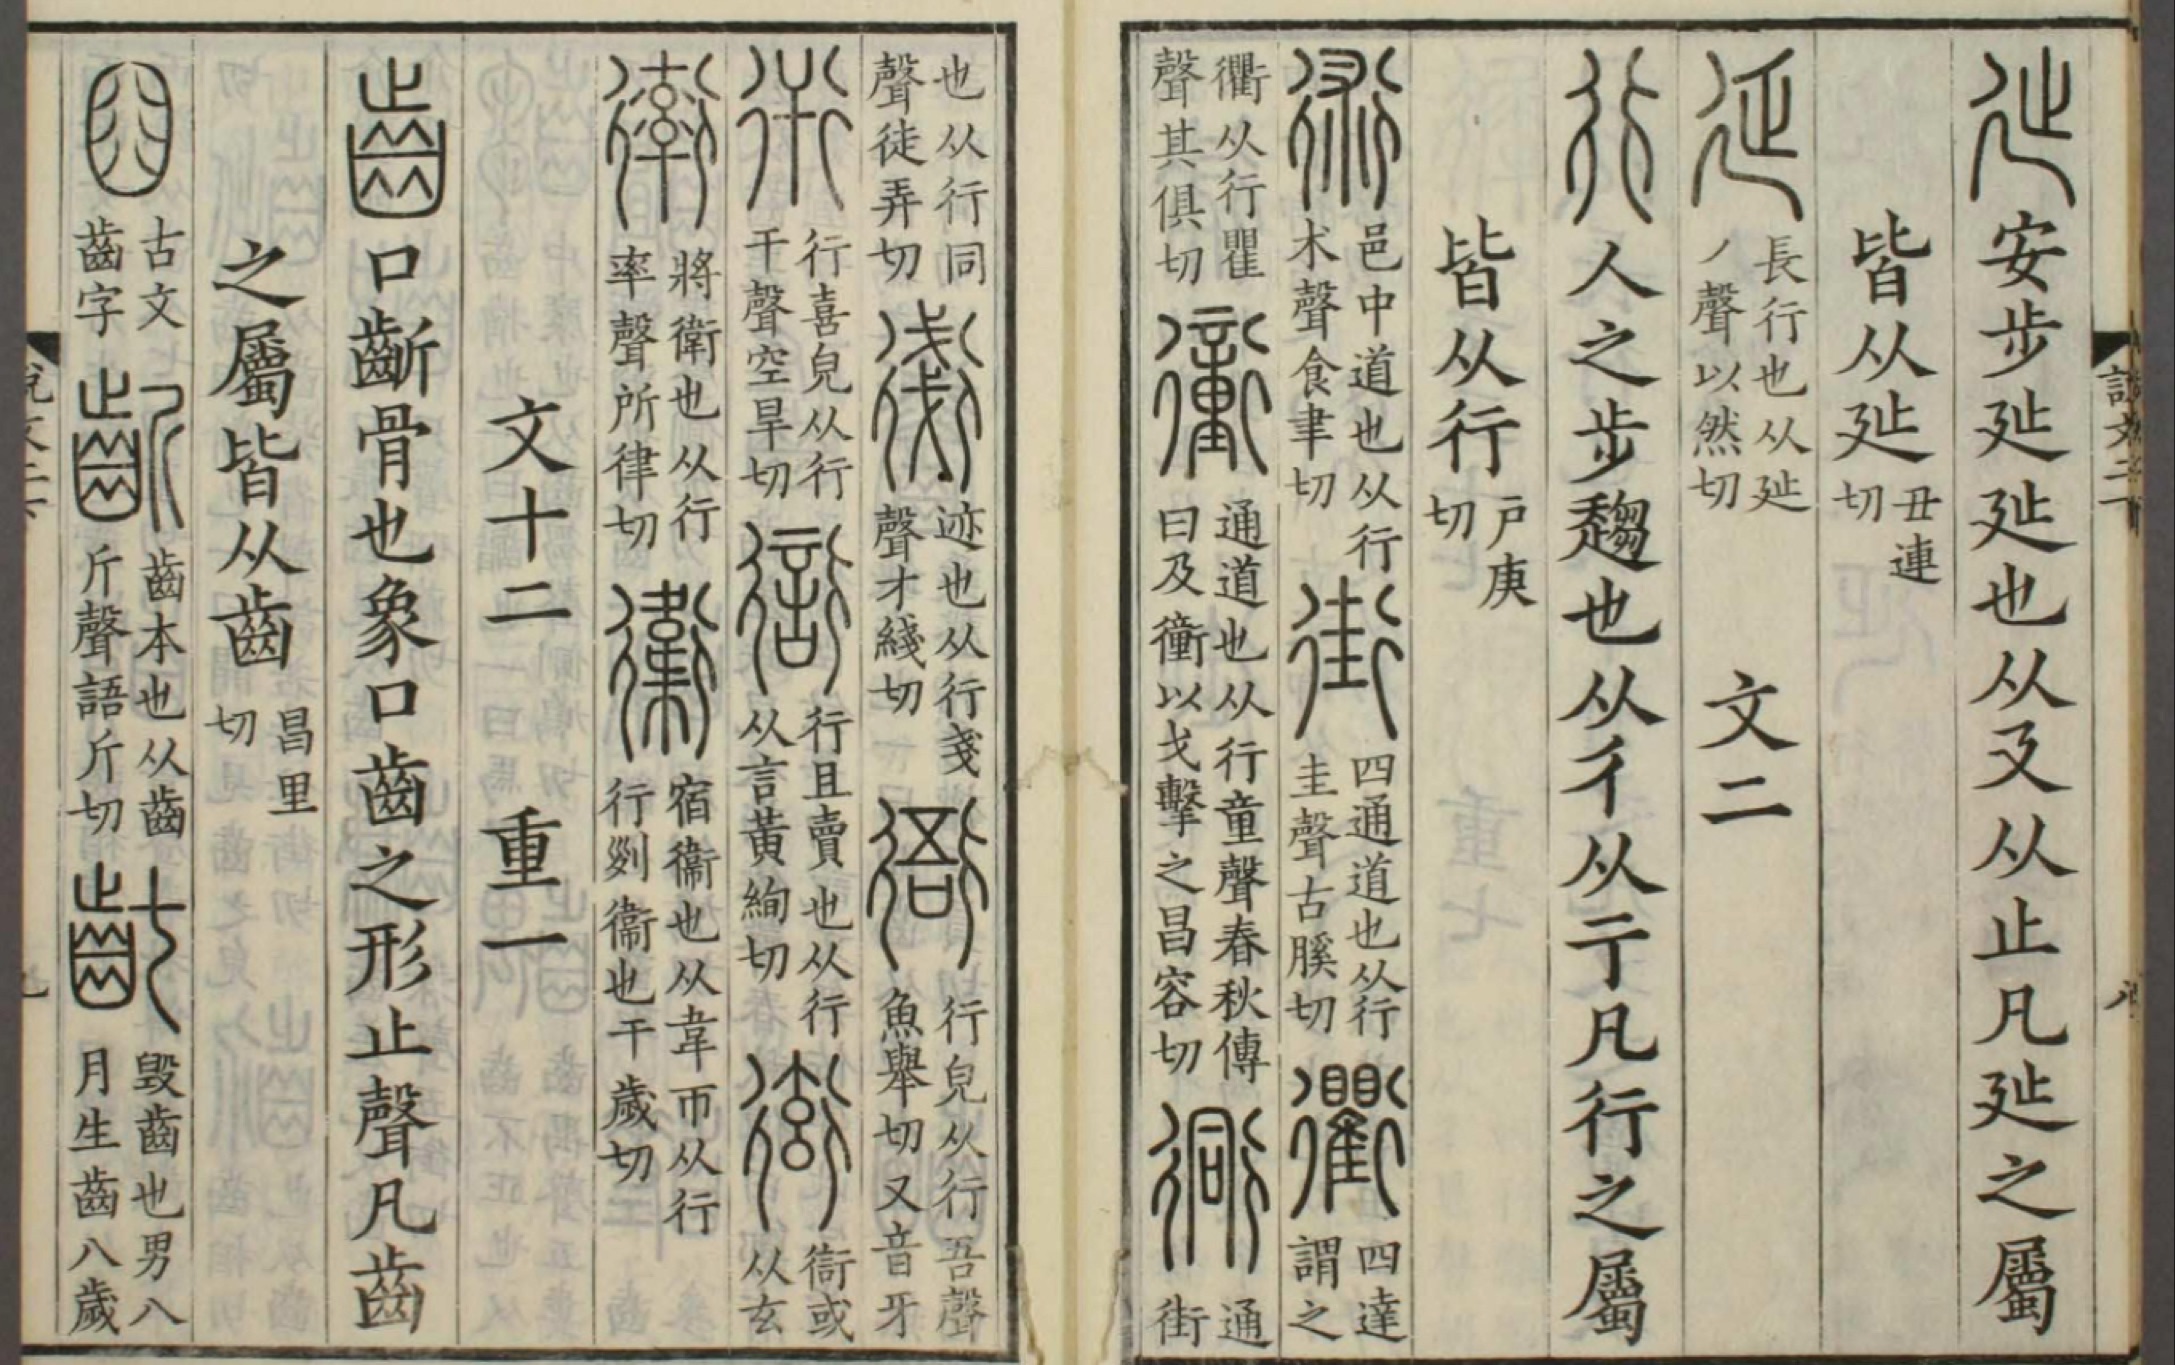 㢟安步㢟㢟也从廴从止凡㢟之屬
皆从㢟丑連切
延長行也从㢟丿聲以然切 文二
行人之步趨也从彳从亍凡行之屬
皆从行戶庚切
術邑中道也从行术聲食聿切街四通道也从行圭聲古膎切衢四達謂之
衢从行瞿聲其俱切𧘂通道也从行童聲春秋傳曰及𧘂以戈擊之昌容切衕通街
也从行同聲徒弄切衙迹也从行戔聲才綫切衙行皃从行吾聲魚舉切又音牙
衎行喜皃从行干聲空旱切𧗳行且賣也从行从言黃絢切衒𧗳或从玄
𧗿將衛也从行率聲所律切衞宿衞也从韋帀从行行列衞也于歲切
文十二 重一
齒口齗骨也象口齒之形止聲凡齒
之屬皆从齒昌里切
𦥒古文齒字齗齒本也从齒斤聲語斤切齔毀齒也男八月生齒八歲